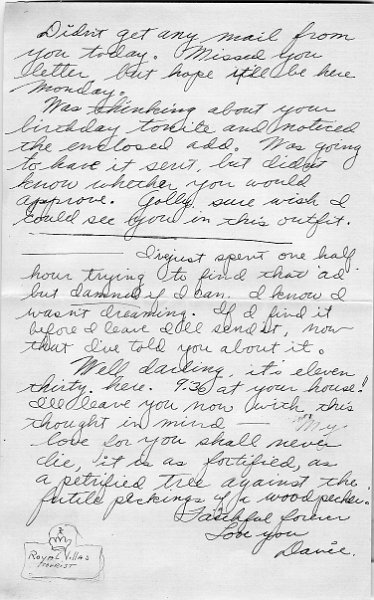 Didn't get any mail from
you today. Missed you
letter, but hope it'll be here
Monday.
Was thinking about your
birthday tonite and noticed
the enclosed add. Was going
to have it sent, but didn't
know whether you would
approve. Golly, sure wish I
could see you in this outfit.
I just spent one half
hour trying to find that ad
but damned if I can. I know I
wasn't dreaming. If I find it
before I leave I'll send it, now
that I've told you about it.
Well darling, it's eleven
thirty here. 9:30 at your house!
I'll leave you now with this
thought in mind — "My
love for you shall never
die, it is as fortified, as
a petrified tree against the
futile peckings of a woodpecker.
Faithful forever
Love you
Davie.
Royal Villas